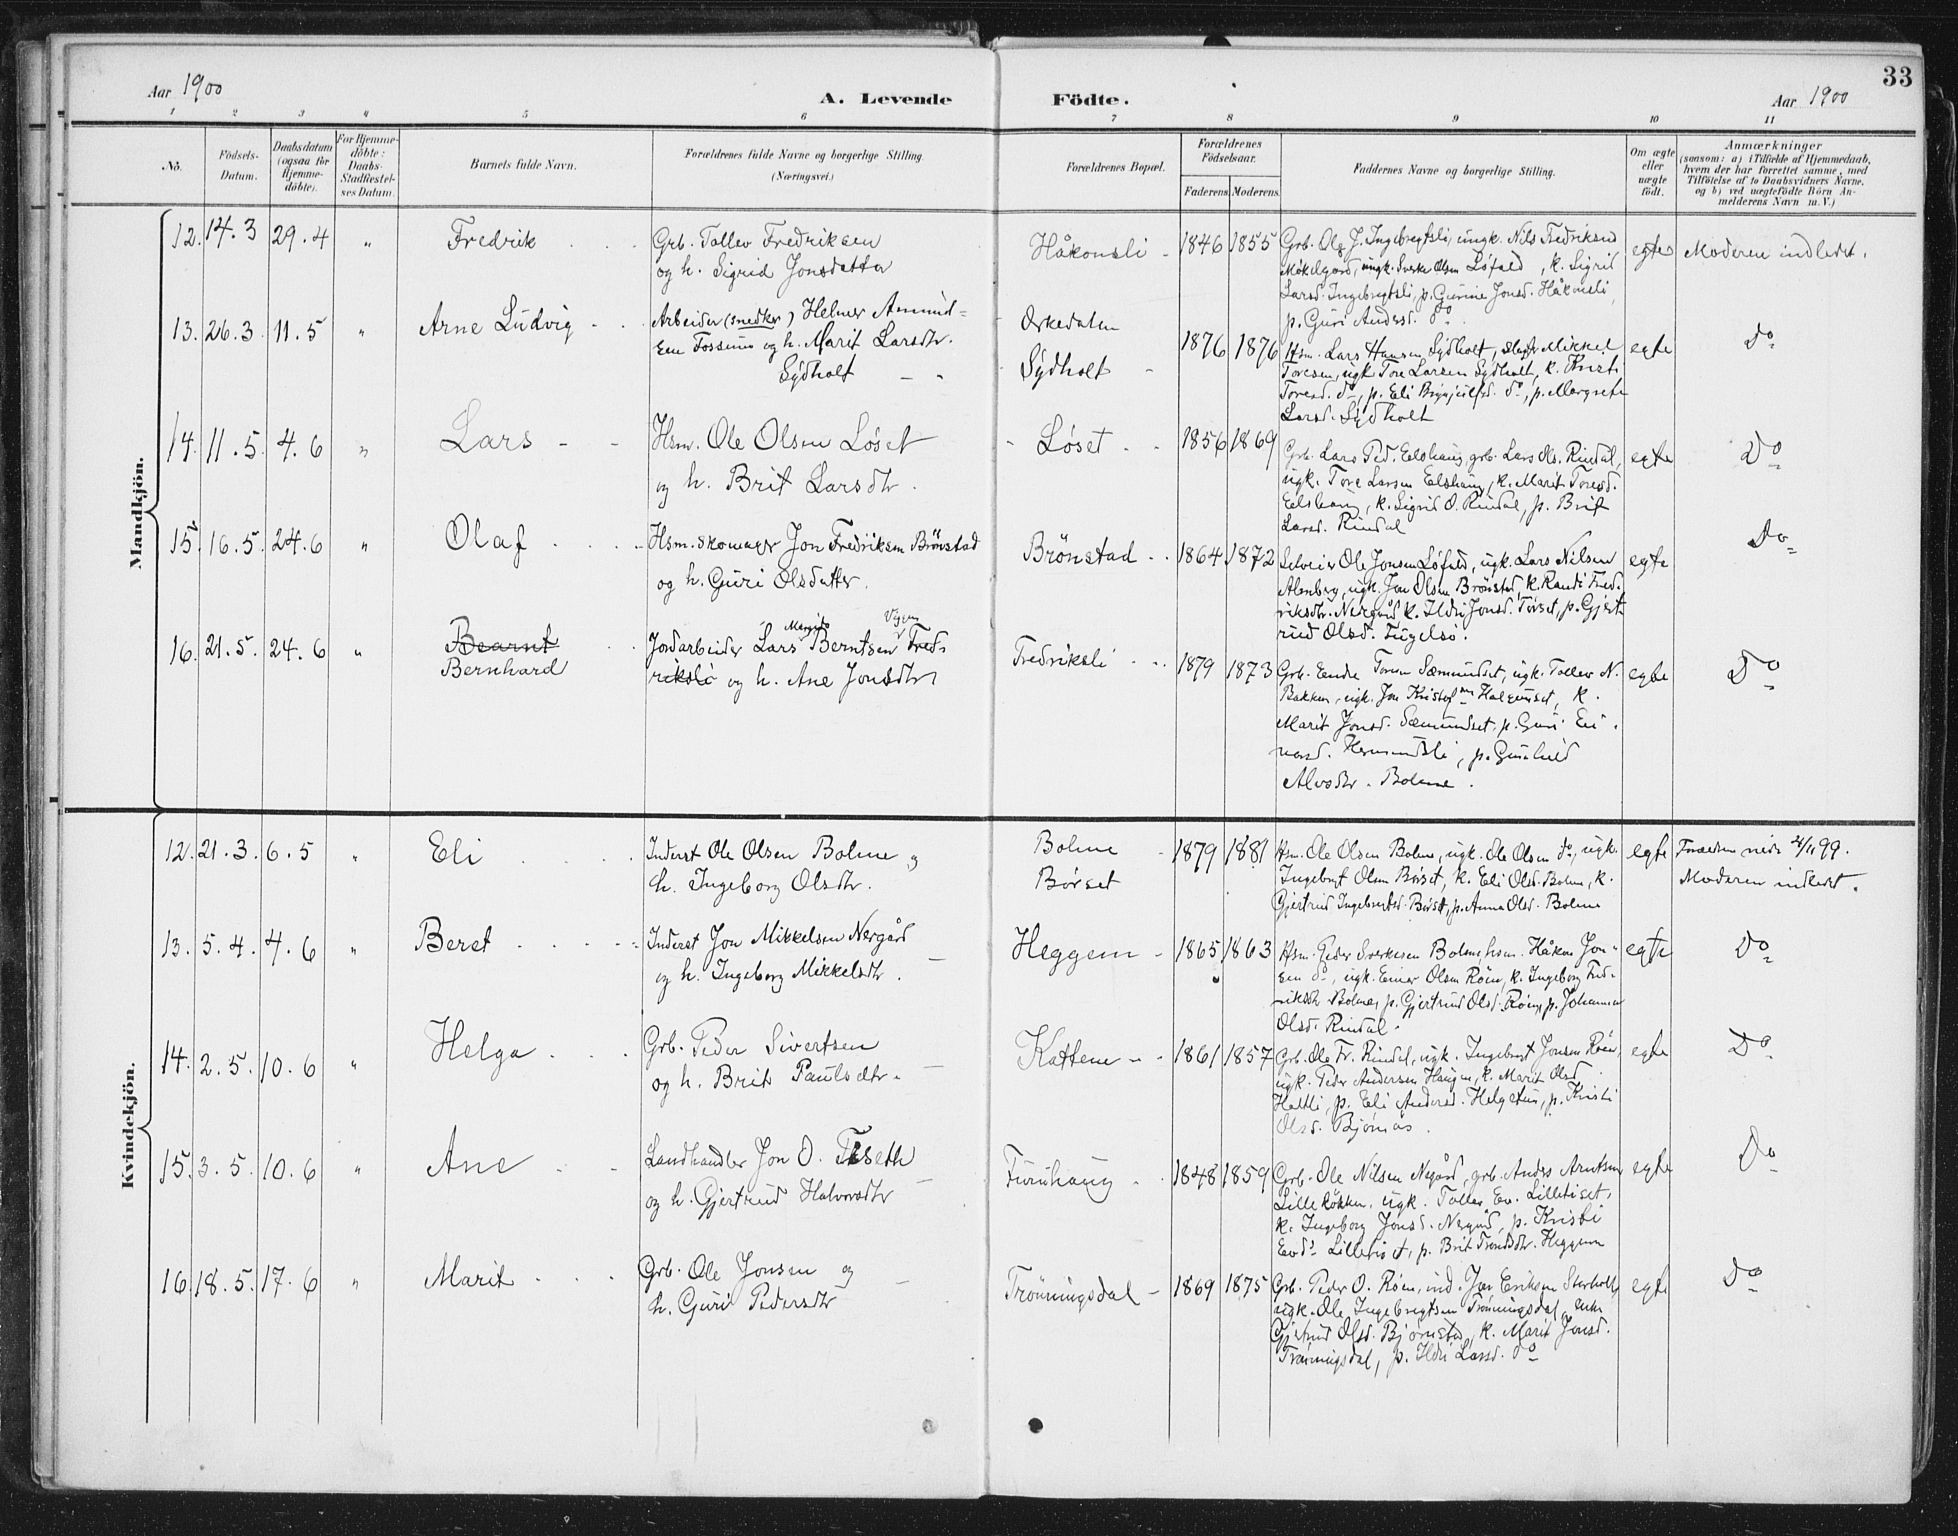 33
Aar 1900
A. Levende Födte.
Aar 1900
1 2 3 4 5 6 7 8 9 10 11
No.
Födsels-Datum.
Daabsdatum (ogsaa for Hjemmedöbte).
For Hjemmedöbte: Daabs-Stadfæstelses Datum.
Barnets fulde Navn.
Forældrenes fulde Navne og borgerlige Stilling. (Næringsvei.)
Forældrenes Bopæl.
Forældrenes Födselsaar.
Faderens Moderens
Faddernes Navne og borgerlige Stilling.
Om ægte eller uægte födt.
Anmærkninger
(saasom: a) i Tilfælde af Hjemmedaab, hvem der har forrettet samme, med Tilföielse af to Daabsvidners Navne, og b) ved uægtefödte Börn Anmelderens Navn m. V.)
Mandkjön.
12. 14.3 29.4 " Fredrik
Grb. Tollev Fredriksen
og h. Sigrid Jonsdatter
Håkonsli 1846 1855
Grb. Ole J. Ingebregtsli, ungk. Nils Fredriksen
Løfald, k. Sigrid
Larsd. Ingebregtsli, p. Gurine Jonsd. Håkonsli,
p. Guri Andersd. do
egte Moderen indledet.
13. 26.3 11.5 " Arne Ludvig
Arbeider (snedker) Helmer Amund-
sen Fossum og h. Marit Larsdtr.
Sydholt
Orkedalen
Sydholt
1876 1876
Hsm. Lars Hansen Sydholt, Mikkel
Toresen, ugk. Tore Larsen Sydholt, k. Kristi
Toresd. do, p. Eli do, p. Margrete
Larsd. Sydholt
egte Do
14. 11.5 4.6 " Lars
Hsm. Ole Olsen Løset
og h. Brit Larsdtr.
Løset 1856 1869
Grb. Lars Ped. Eelshaug, grb. Lars Ols. Rindal,
ugk. Tore Larsen Eelshaug, k. Marit Toresd.
Eelshaug, k. Sigrid O. Rindal, p. Brit
Larsd. Rindal
egte Do
15. 16.5. 24.6 " Olaf
Hsm. skomager Jon Fredriksen Brönstad
og h. Guri Olsdatter.
Brönstad 1864 1872
Selveier Ole Jonsen Løfald, ugk. Lars Nilsen
Alenberg, ugk. Jon Olsen Brönstad, k. Randi Fred-
riksdtr. Nergård k. Ildri Jonsd. Tørset, p. Gjert-
rud Olsd. Fugelsö.
egte Do
16. 21.5. 24.6 " Bearnt
Bernhard
Jordarbeider Lars Berntsen Fred-
riksli og h. Ane Jonsdtr
Fredriksli 1879 1873
Grb. Eendre Toresen Sæmundset, ugk. Tollev N.
Bakken, ugk. Jon Kristofsen Halgunset, k.
Marit Jonsd. Sæmundset, p. Guri Ei-
narsd. Hermundsli, p. Gunhild
Alvsdtr. Bolme.
egte Do
Kvindekjön.
12. 21.3. 6.5 " Eli
Inderst Ole Olsen Bolme og
h. Ingeborg Olsdtr.
Bolme
Börset
1879 1881
Hsm. Ole Olsen Bolme, ugk. Ole Olsen do, ugk.
Ingebregt Olsen Börset, k. Eli Olsd. Bolme, k.
Gjertrud Ingebregtsd. Börset, p. Anna Olsd. Bolme
egte 99.
Moderen indledt.
13. 5.4. 4.6 " Beret
Inderst Jon Mikkelsen Nergård
og h. Ingeborg Mikkelsdtr.
Heggem 1865 1863
Hsm. Peder Sverkesen Bolme, hsm. Håkon Jon-
sen do, ugk. Einar Olsen Röen, k. Ingeborg Fred-
riksdtr Bolme, p. Gjertrud Olsd. Röen, p. Johanna
Olsd. Rindal.
egte Do
14. 2.5. 10.6 " Helga
Grb. Peder Sivertsen
og h. Brit Paulsdtr.
Kattem 1861 1857
Grb. Ole Fr. Rindal, ugk. Ingebregt Jonsen Röen,
ugk. Peder Andersen Haugen, k. Marit Olsd.
Holtli, p. Eli Andersd. Helgetun, p. Kristi
Olsd. Bjørnås.
egte Do
15. 3.5. 10.6 " Ane
Landhandler Jon O. Tiseth
og h. Gjertrud Halvorsdtr
Furuhaug 1848 1859
Grb. Ole Nilsen Negård, grb. Anders Arntsen
Lilleløkken, ugk. Tollev Ev. Lilletiset,
k. Ingeborg Jonsd. Nergård, p. Kristi
Evd. Lilletiset, p. Brit Trondsdtr. Heggem
egte Do
16. 18.5. 17.6 " Marit
Grb. Ole Jonsen og
h. Guri Pedersdtr
Trönningsdal 1869 1875
Grb. Peder O. Röen, ind. Jon Eriksen Storholt,
ugk. Ole Ingebregtsen Trönningsdal, enke
Gjertrud Olsd. Bjørnstad, k. Marit Jonsd.
Trönningsdal, p. Ildri Larsd. do
egte Do